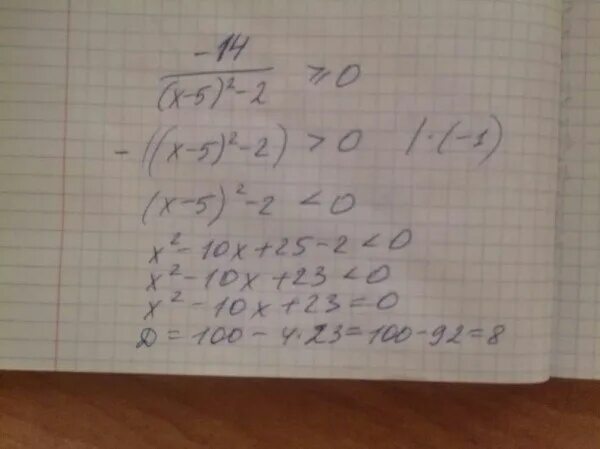 -14
(x-5)²-2 ⩾0
-((x-5)²-2)>0 |·(-1)
(x-5)²-2<0
x²-10x+25-2<0
x²-10x+23<0
x²-10x+23=0
D=100-4·23=100-92=8